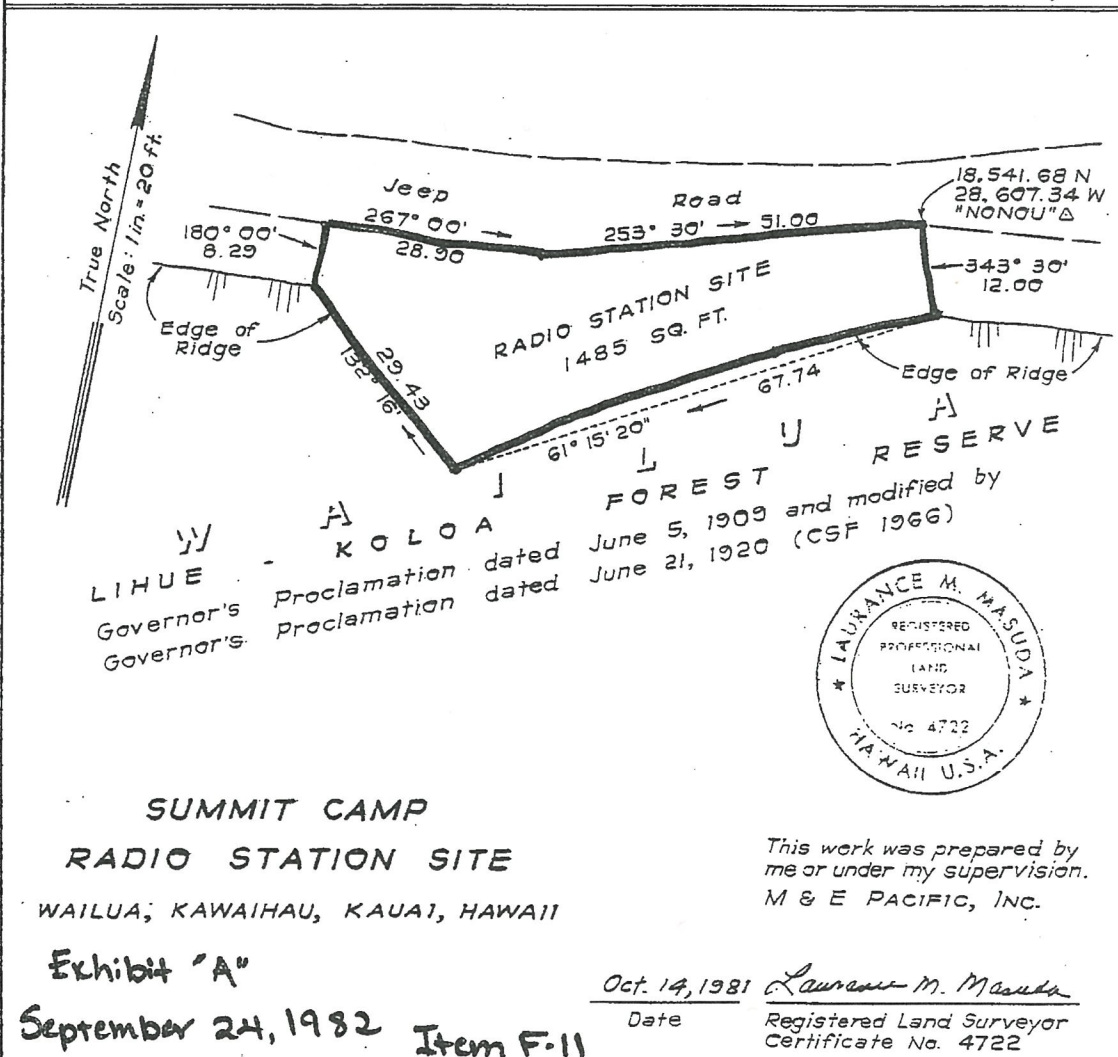 True North
Scale: 1 in. = 20 ft.
Jeep Road
267° 00'
28.90
253° 30' 51.00
18,541.68 N
28,607.34 W
"NONOU"△
180° 00'
8.29
343° 30'
12.00
Edge of
Ridge
RADIO STATION SITE
1485 SQ. FT.
29.43
132° 16'
67.74
61° 15' 20"
Edge of Ridge
W A I L U A
LIHUE - KOLOA FOREST RESERVE
Governor's Proclamation dated June 5, 1909 and modified by
Governor's Proclamation dated June 21, 1920 (CSF 1966)
LAURANCE M. MASUDA
REGISTERED
PROFESSIONAL
LAND
SURVEYOR
No. 4722
HAWAII U.S.A.
SUMMIT CAMP
RADIO STATION SITE
WAILUA, KAWAIHAU, KAUAI, HAWAII
This work was prepared by
me or under my supervision.
M & E PACIFIC, INC.
Exhibit "A"
September 24, 1982 Item F-11
Oct. 14, 1981 Laurance M. Masuda
Date
Registered Land Surveyor
Certificate No. 4722